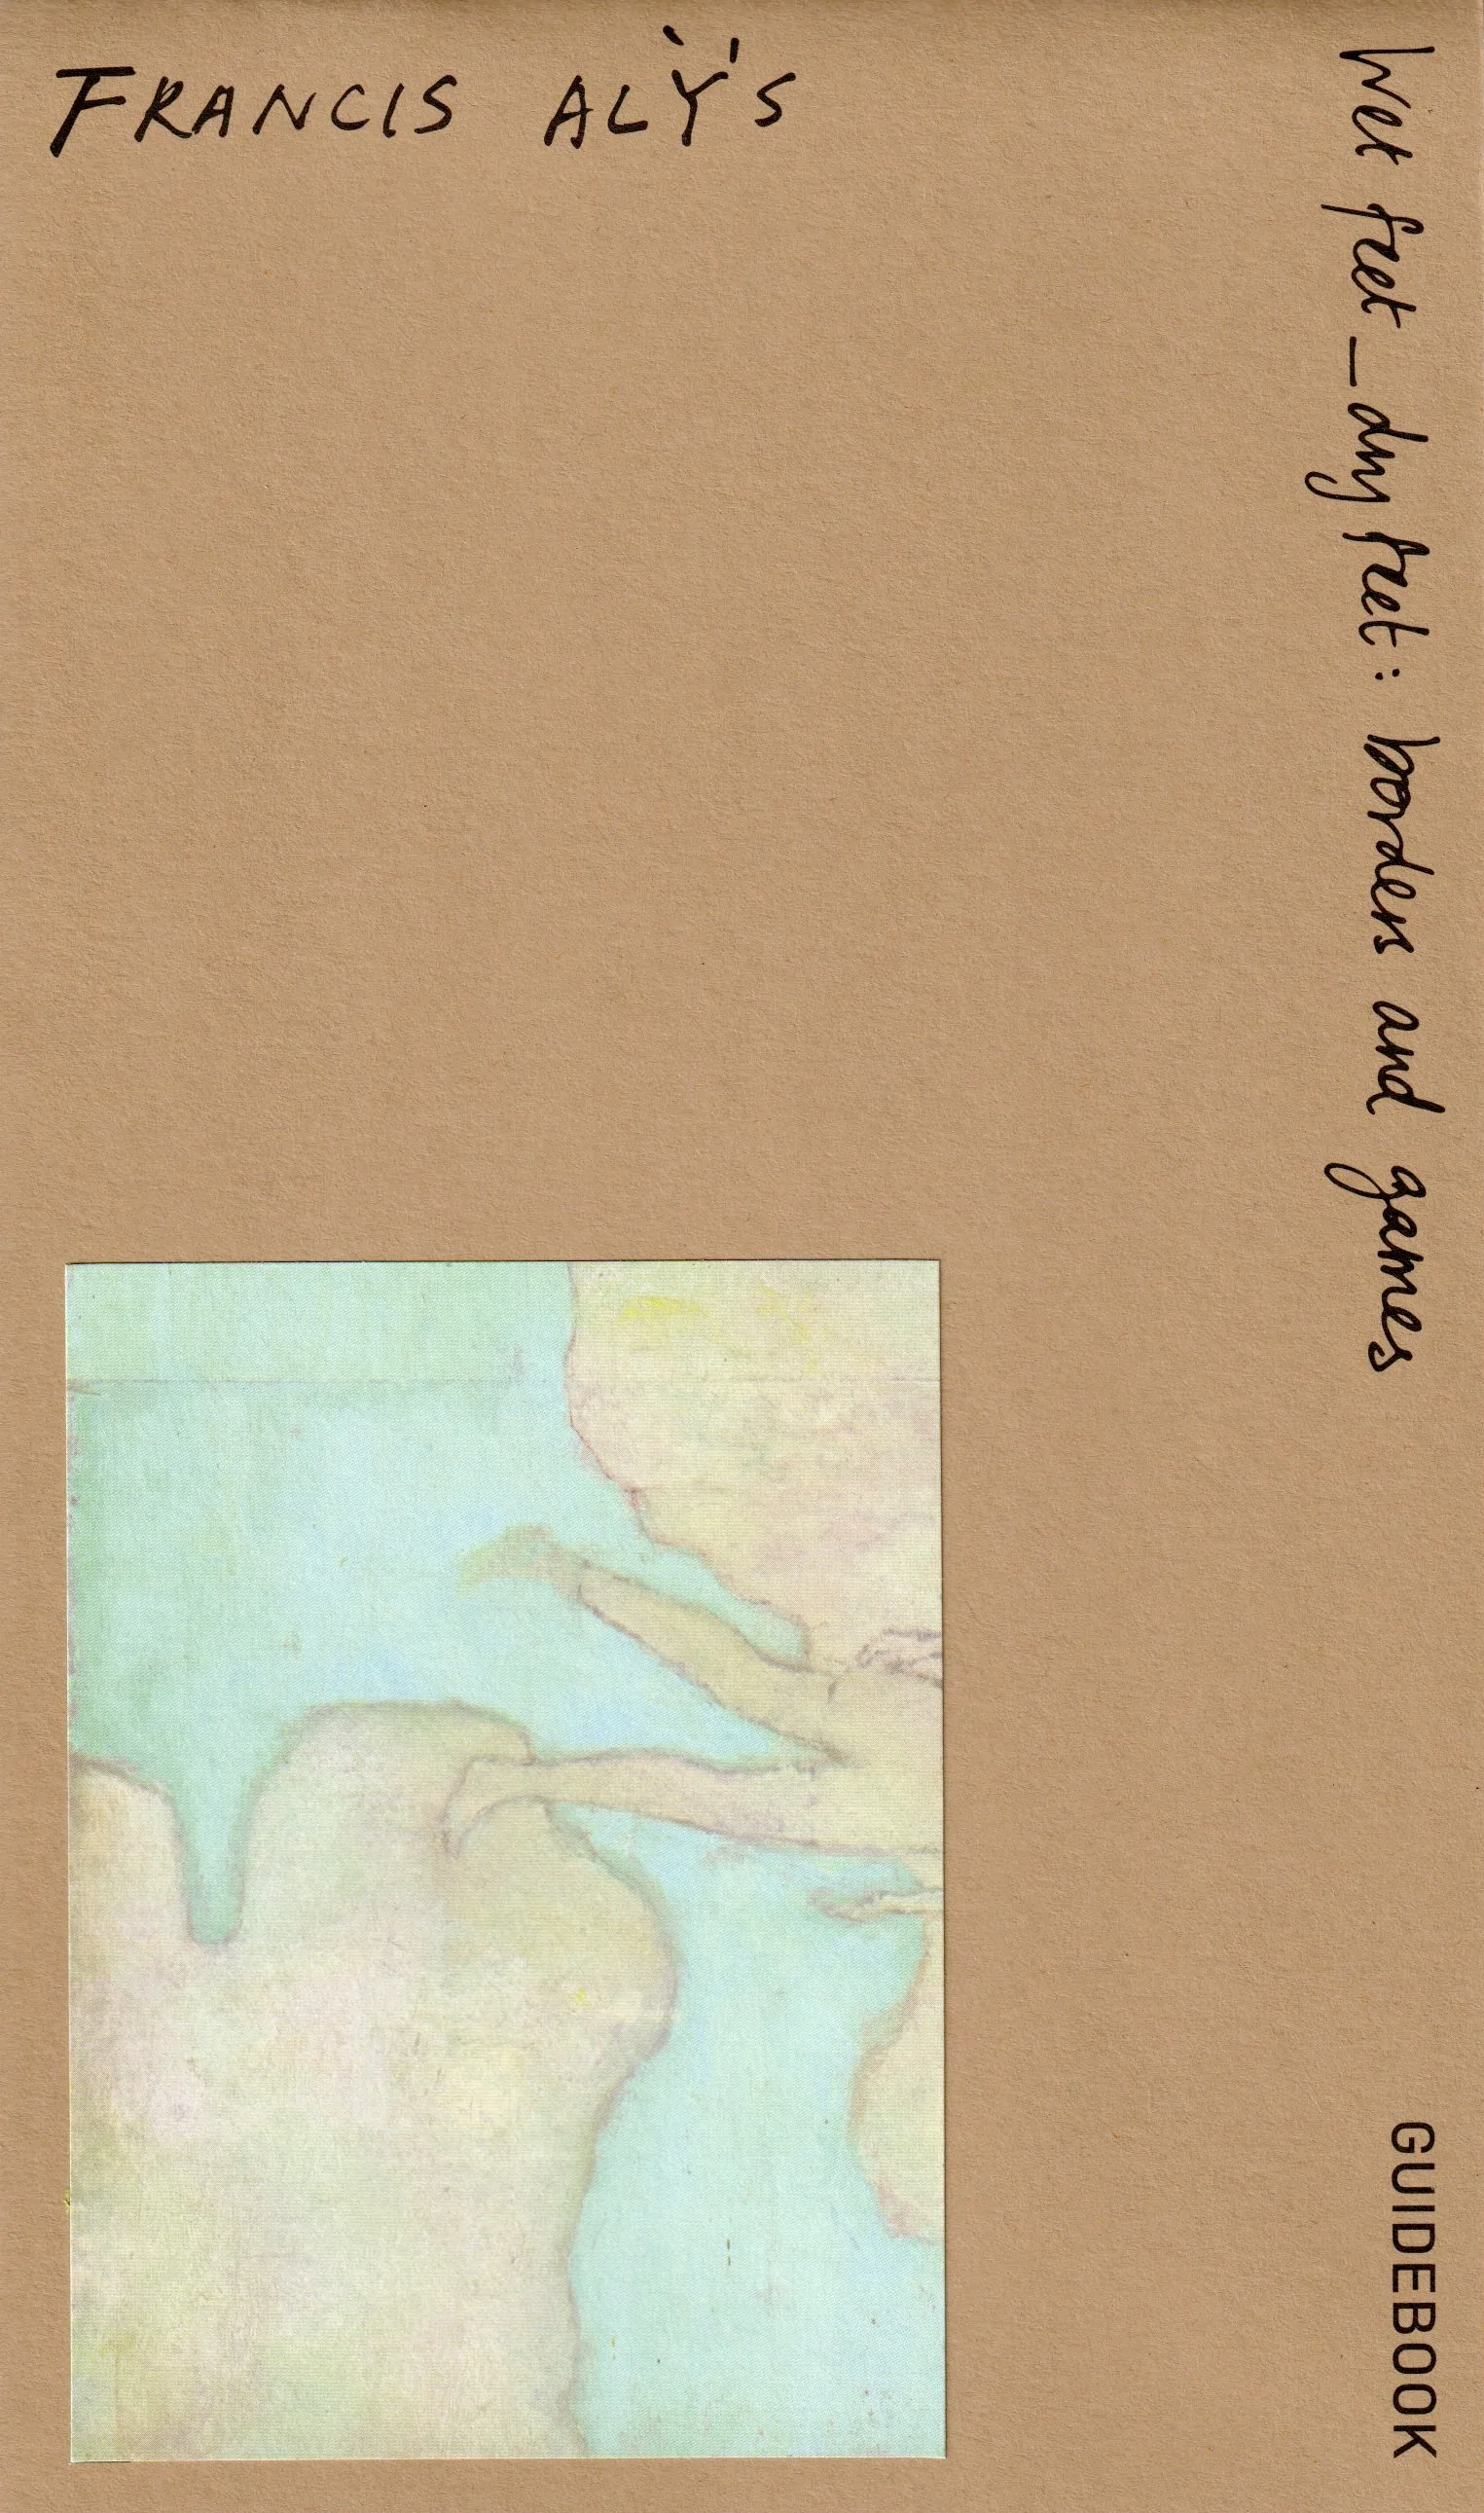 FRANCIS ALŸS
Wet feet_dry feet: borders and games
GUIDEBOOK